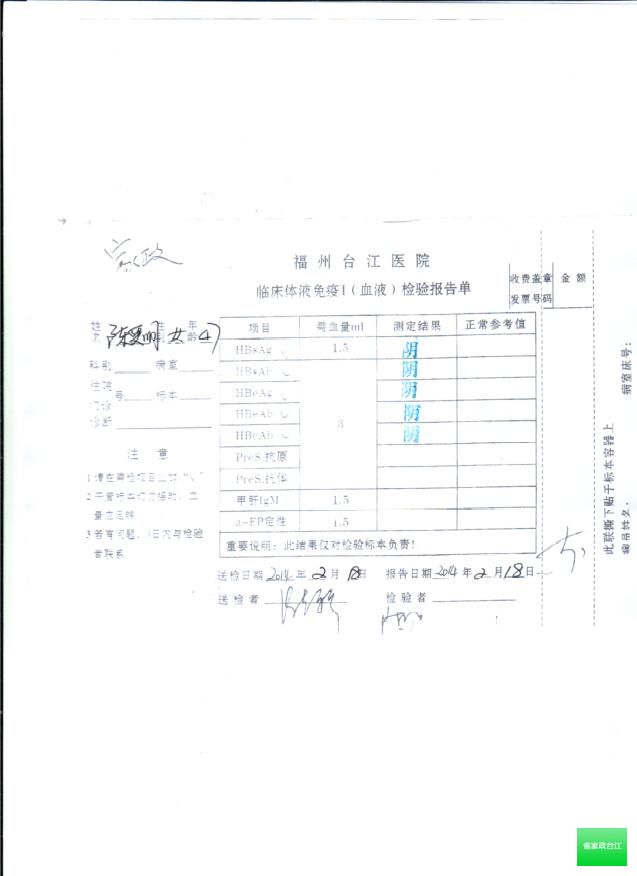 家政
福州台江医院
临床体液免疫I（血液）检验报告单
收费盖章 金额
发票号码
姓名 性别 女 年龄 47
科别 病室
住院
门诊 号 标本
诊断
注意
1 请在需检项目上打“√”
3 若有问题，
日内与检验
者联系
项目 需血量ml 测定结果 正常参考值
HBsAg 1.5 阴
HBsAb 阴
HBeAg 3 阴
HBeAb 阴
HBcAb 阴
PreS₁抗原
PreS₂抗体
甲肝IgM 1.5
α-FP定性 1.5
重要说明：此结果仅对检验标本负责！
送检日期 2014 年 2 月 18 日 报告日期 2014 年 2 月 18 日
送检者 检验者
此联撕下贴于标本容器上
病室床号：
编号姓名：
省家政台江